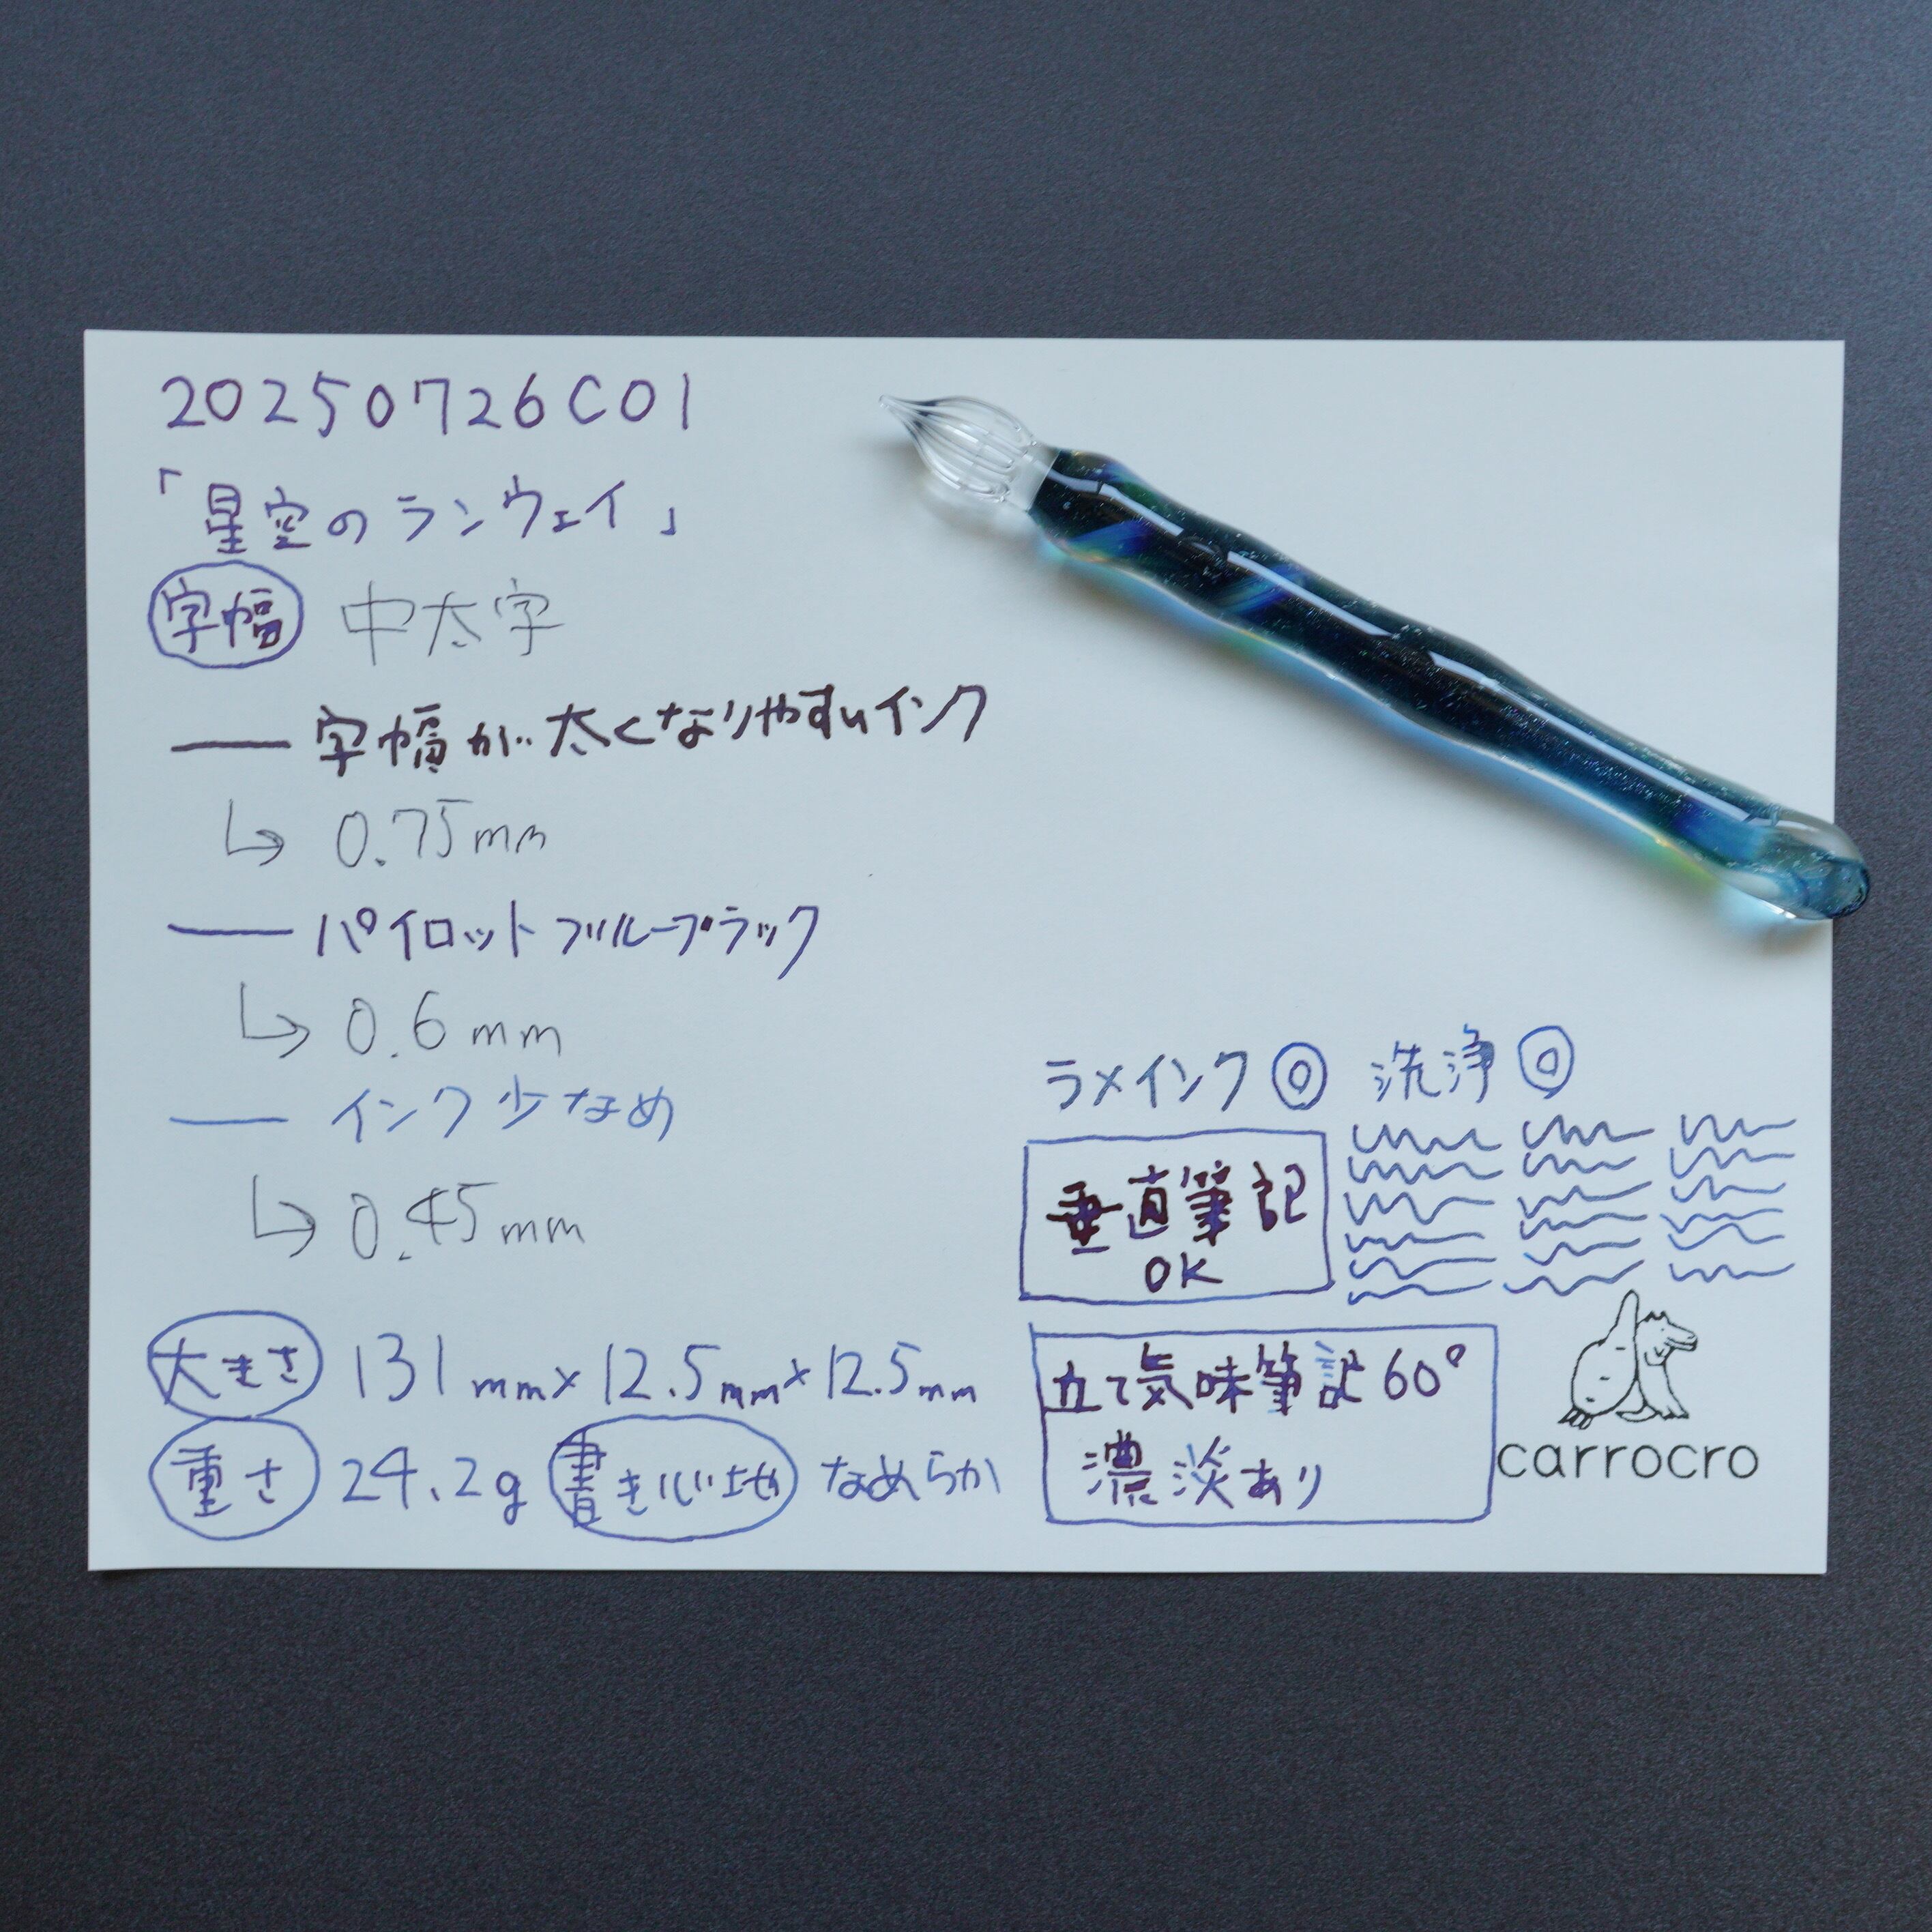 20250726C01
「星空のランウェイ」
字幅 中太字
字幅が太くなりやすいインク
0.75mm
パイロットブルーブラック
0.6mm
インク少なめ
0.45mm
大きさ 131mm×12.5mm×12.5mm
重さ 24.2g 書き心地 なめらか
ラメインク◎ 洗浄◎
垂直筆記
OK
立て気味筆記60°
濃淡あり
carrocro